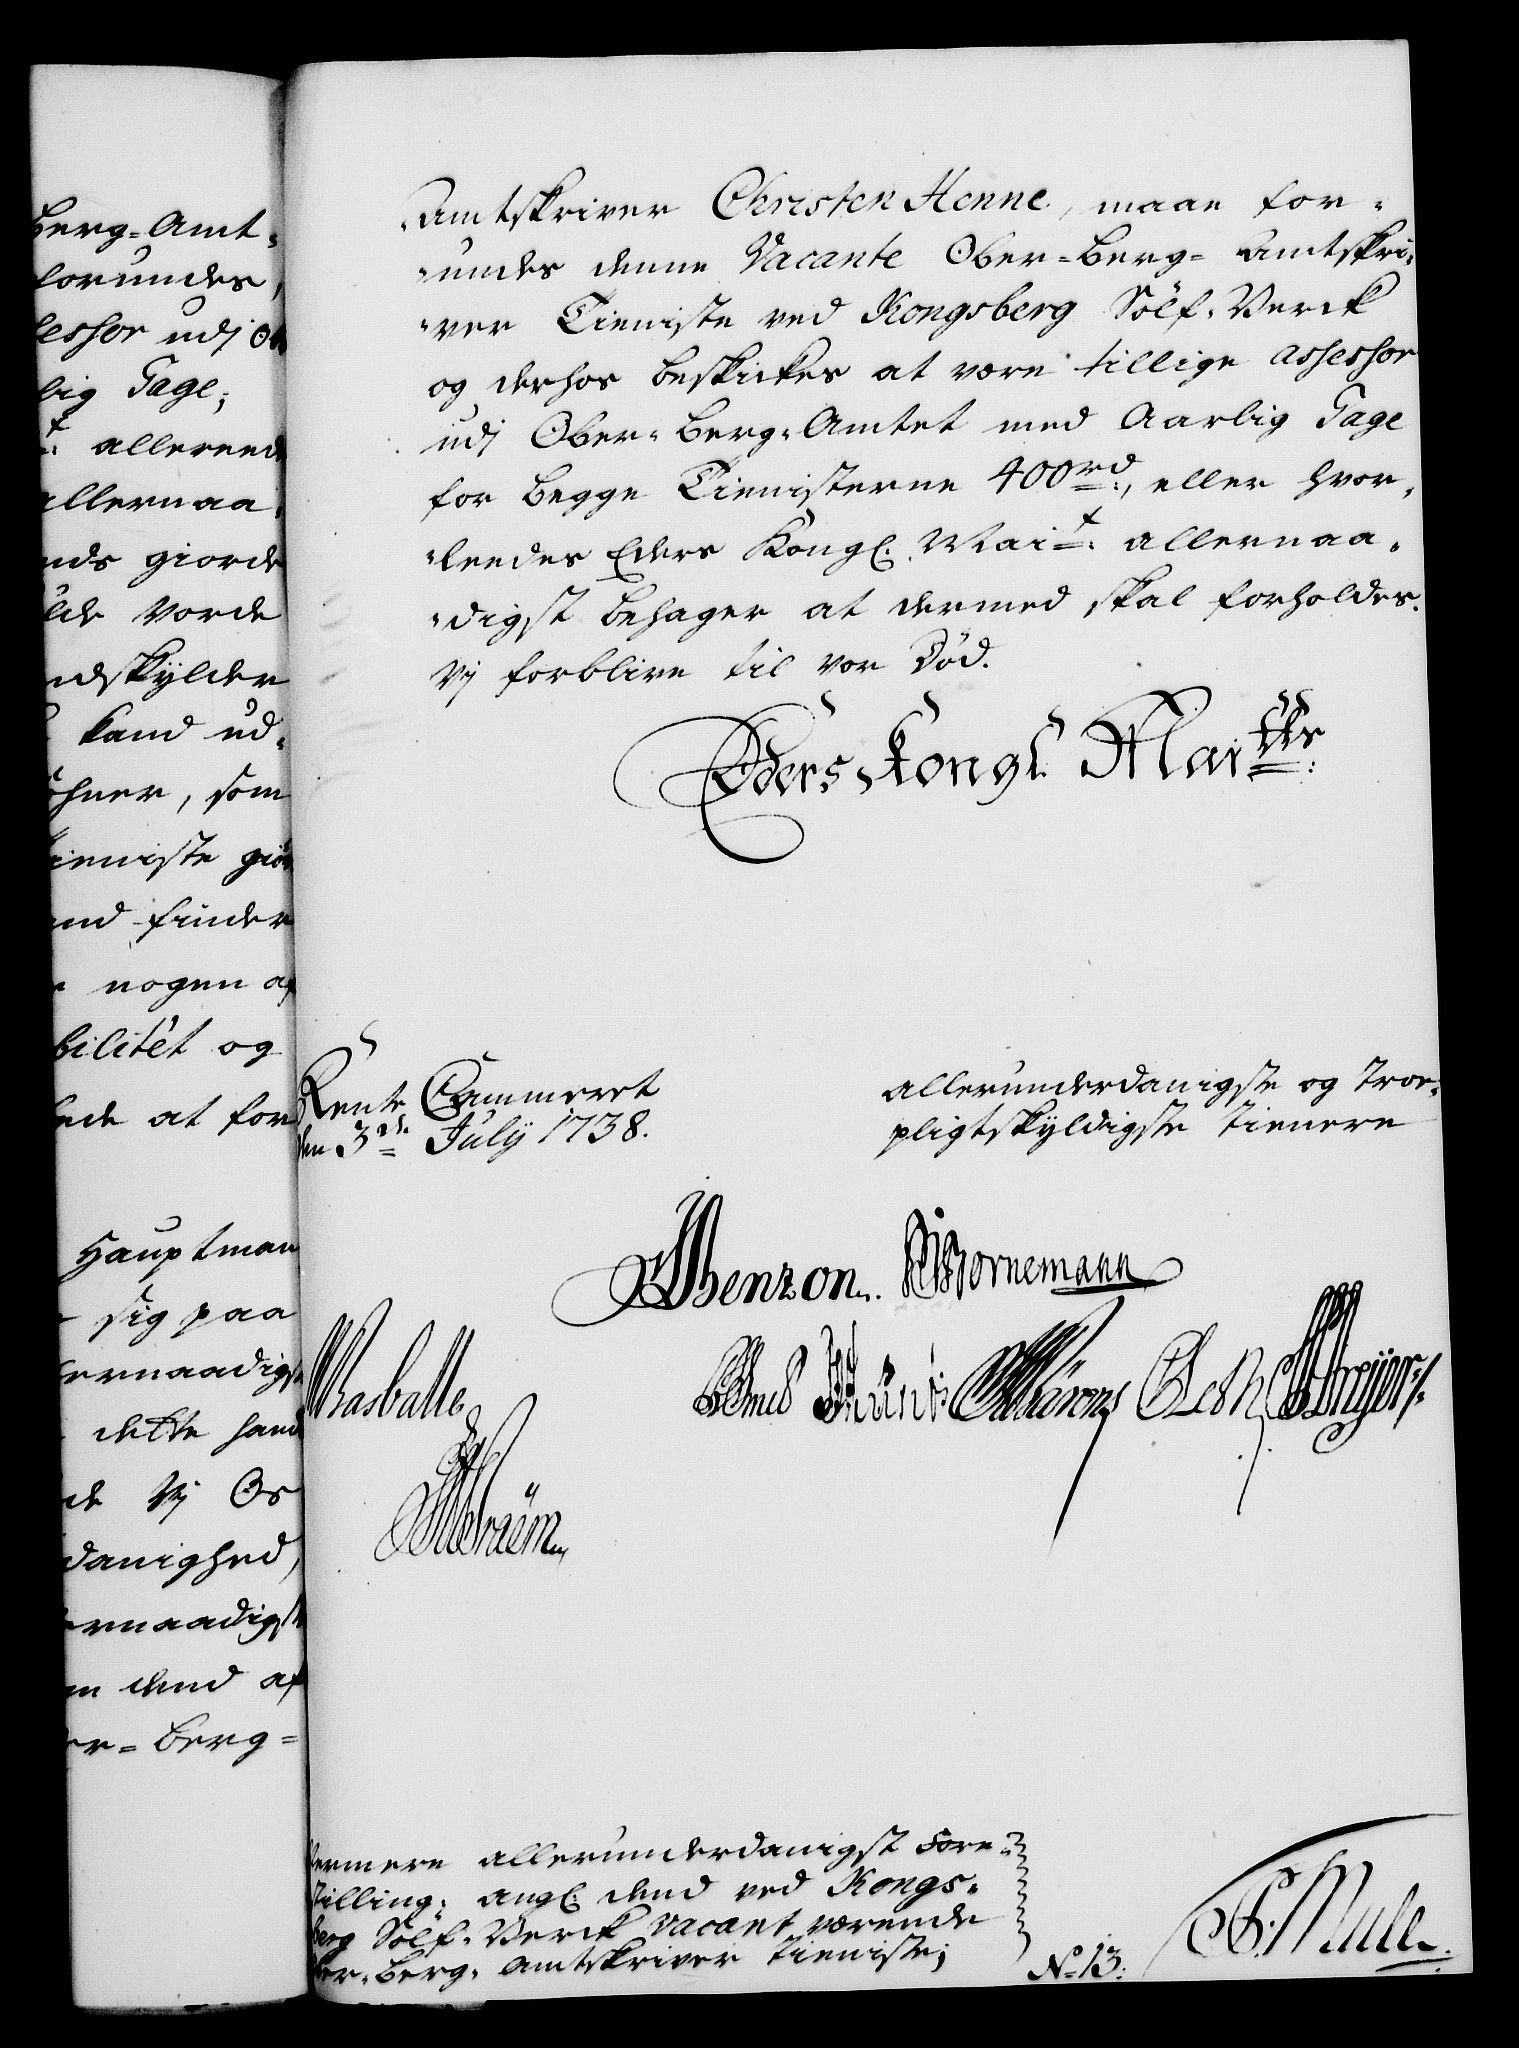 Berg-Amt-
forundes,
sessor udj Ob
lig Gage;
t: allereede
allernaa-
nds giorde
lde vorde
ndskylder
kand ud-
öhner, som
ieniste giör
nd finder
nogen af
bilitet og
ede at for
Hauptman
sig paa
lernaadigst
dette hand
de Vj Os
danighed,
ernaadigst
m dend af
er-Berg-
Amtskriver Christen Henne, maae for-
-undes denne Vacante Ober-Berg-Amtskri-
-ver Tieniste ved Kongsberg Sölf-Verck
og derhos beskickes at være tillige Assessor
udj Ober-Berg-Amtet med Aarlig Gage
for begge Tienisterne 400rd:, eller hvor-
-leedes Eders Kongl. Mait: allernaa-
-digst behager at dermed skal forholdes.
Vj forblive til vor Död.
Eders Kongl. Maitts:
Rente Cammeret
den 3de July 1738.
allerunderdanigste og Troe-
pligtskyldigste Tienere
Benzon. Bornemann
Basballe
Körens Leth Dreyer
Fraëm
Nermere allerunderdanigst Fore-
stilling; angl. dend ved Kongs-
berg Sölf-Verck vacant værende
Ober-Berg-Amtskriver Tieniste;
No 13:
C. Mule.